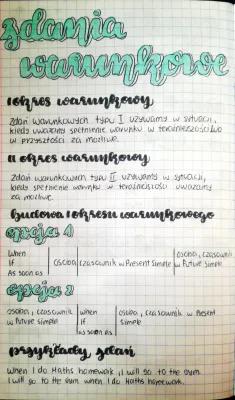 zdania
warunkowe
I okres warunkowy
Zdań warunkowych typu I używamy w sytuacji,
kiedy uważamy spełnienie warunku w teraźniejszości lub
w przyszłości za możliwe.
II okres warunkowy
Zdań warunkowych typu II używamy w sytuacji,
kiedy spełnienie warunku w teraźniejszości uważamy
za możliwe.
budowa I okresu warunkowego
opcja 1
When
If
As soon as
osoba, czasownik w Present Simple
osoba, czasownik
w Future Simple
opcja 2
osoba, czasownik
w Future Simple
when
if
as soon as
osoba, czasownik w Present
Simple
przykłady zdań
When I do Maths homework, I will go to the gym.
I will go to the gym when I do Maths homework.